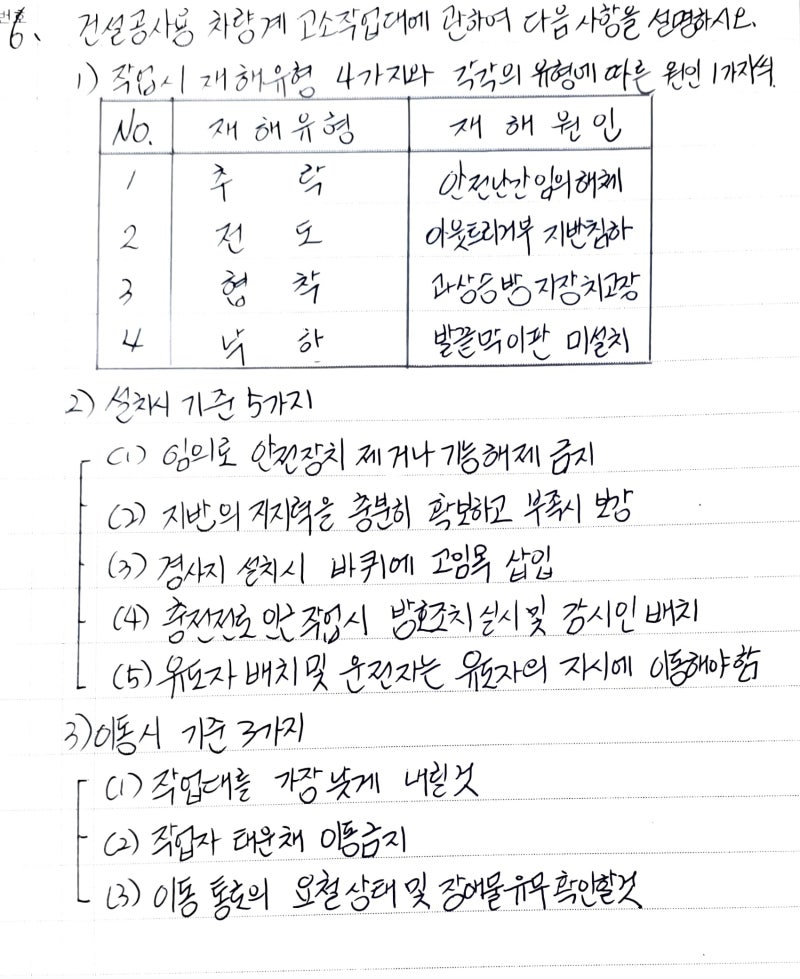 번호
6. 건설공사용 차량계 고소작업대에 관하여 다음 사항을 설명하시오.
1) 작업시 재해유형 4가지와 각각의 유형에 따른 원인 1가지씩.
No. 재해유형 재해원인
1 추락 안전난간 임의해체
2 전도 아웃트리거부 지반침하
3 협착 과상승방지장치고장
4 낙하 발끝막이판 미설치
2) 설치시 기준 5가지
(1) 임의로 안전장치 제거나 기능해제 금지
(2) 지반의 지지력을 충분히 확보하고 부족시 보강
(3) 경사지 설치시 바퀴에 고임목 삽입
(4) 충전전로 인근 작업시 방호조치 실시 및 감시인 배치
(5) 유도자 배치 및 운전자는 유도자의 지시에 이동해야 함
3) 이동시 기준 3가지
(1) 작업대를 가장 낮게 내릴것
(2) 작업자 태운채 이동금지
(3) 이동 통로의 요철상태 및 장애물 유무 확인할것